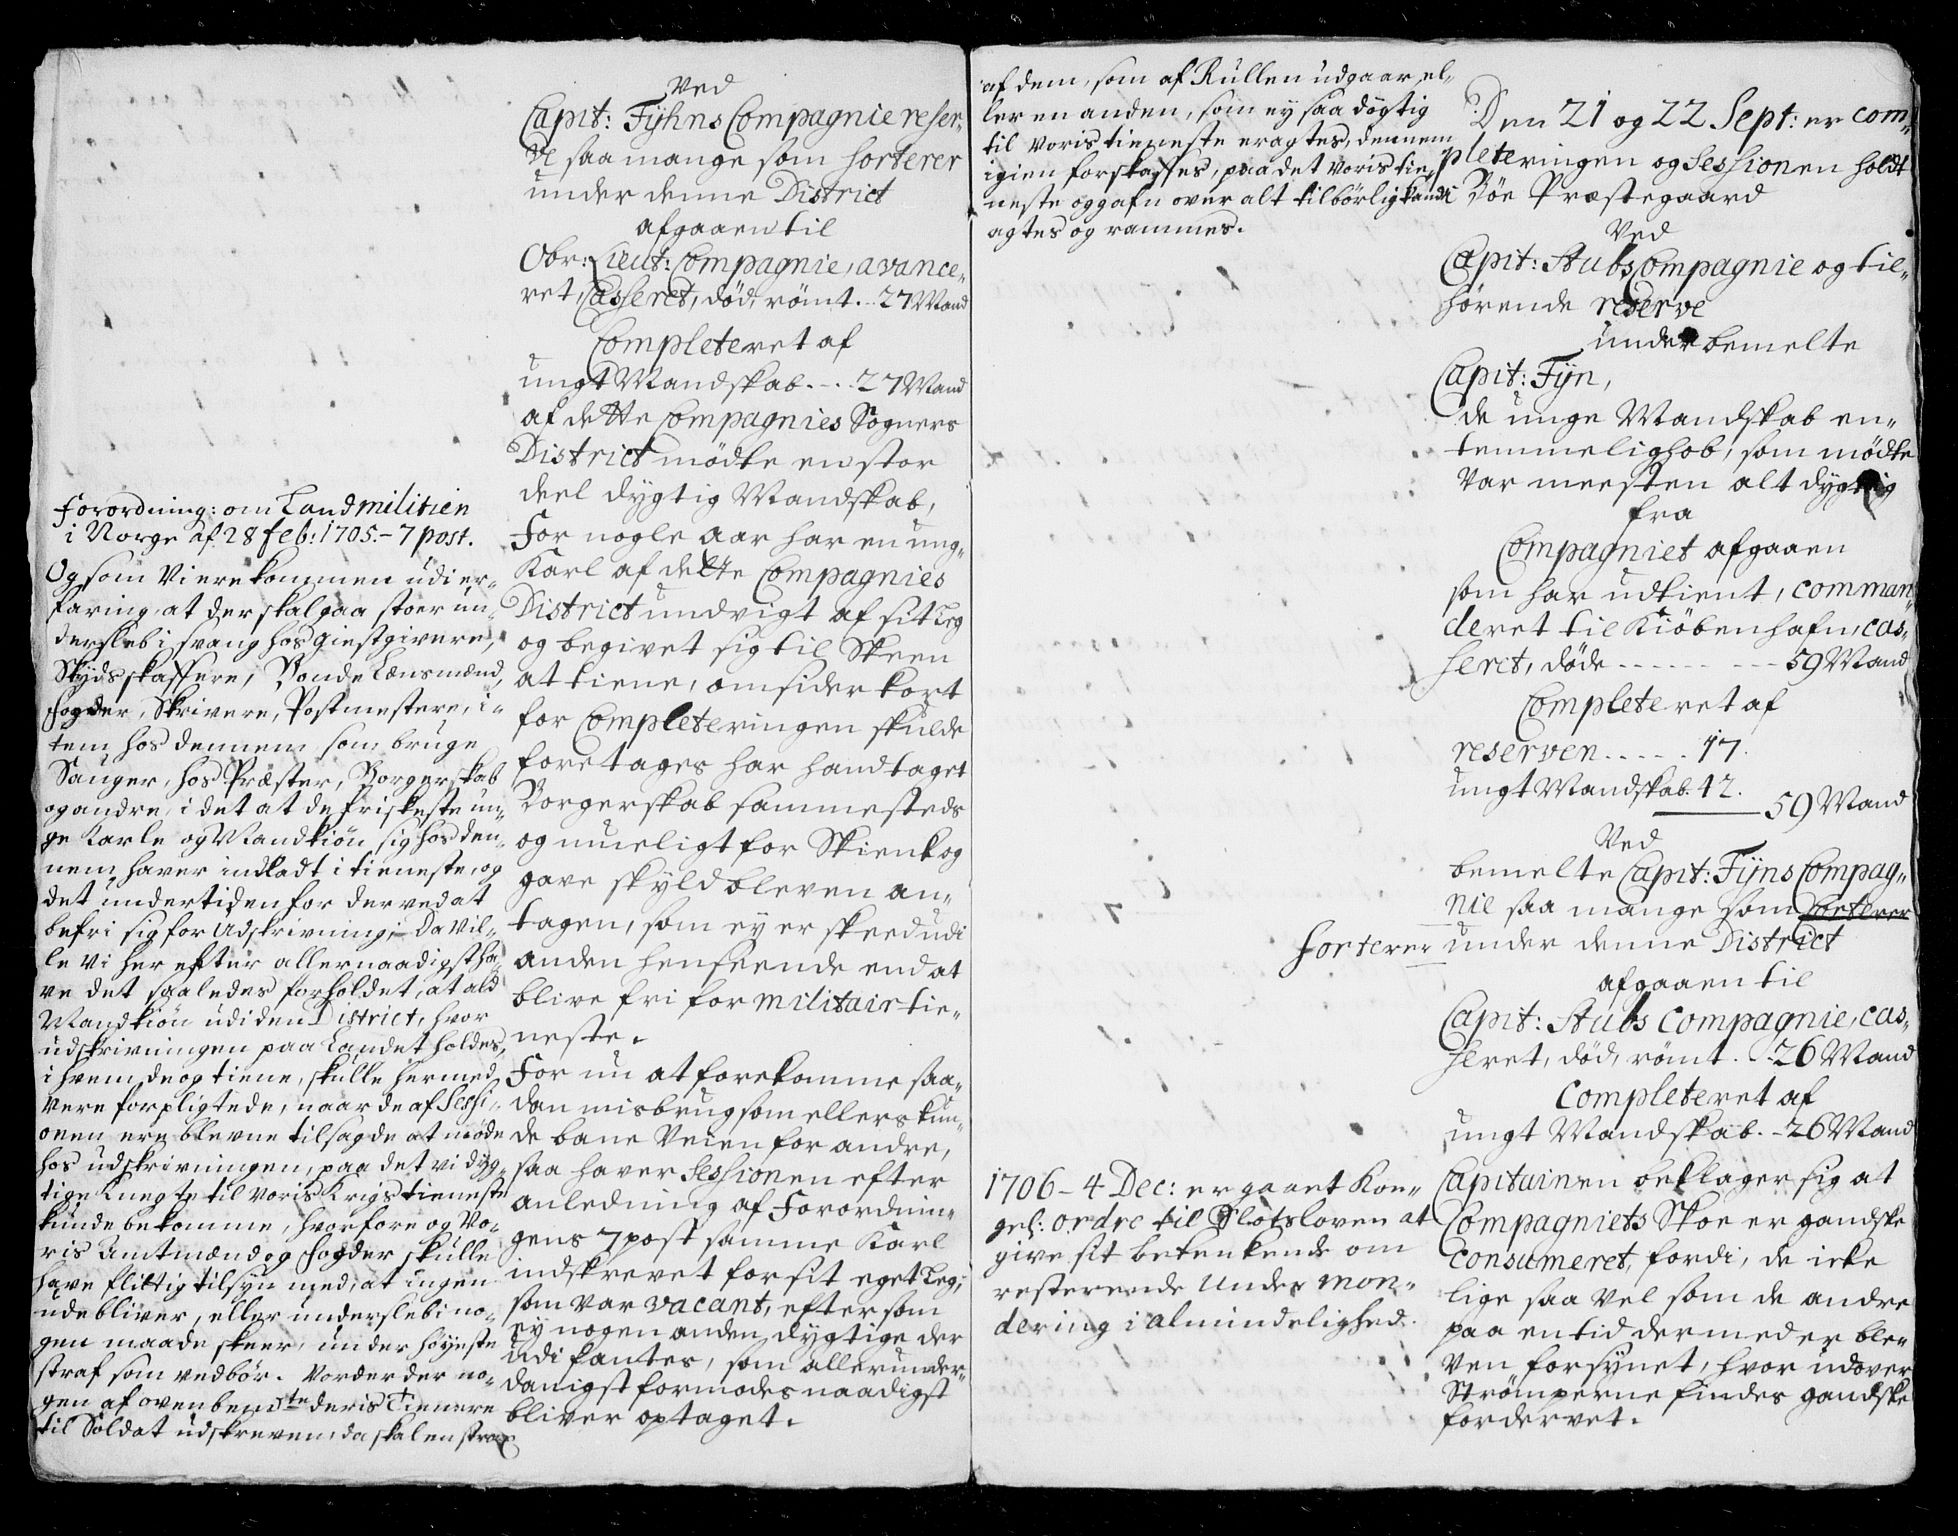 Forordning: om Landmilitien
i Norge af 28 feb: 1705.- 7 post.
Og som Vi ere kommen udi er-
faring, at der skal gaa stoer un-
dersleb i svang hos giestgivere,
Skydsskaffere, Bonde Lænsmænd,
fogder, Skrivere, Postmestere, i-
tem hos dennem som bruge
Sauger, hos Præster, Borgerskab
og andre, i det at de friskeste un-
ge Karle og Mandkiøn sig hos den-
nem haver indladt i tieneste, og
det undertiden for derved at
befri sig for Udskrivning, Da Vil-
le Vi her efter allernaadigst ha-
ve det saaledes forholdet, at ald
Mandkiøn udi den District, hvor
udskrivningen paa Landet holdes,
i hvem de og tiene, skulle hermed
vere forpligtede, naar de af Sessi-
onen ere blevne tilsagde at møde
hos udskrivningen, paa det vi dyg-
tige Knegte til Voris Krigstieneste
kunde bekomme, hvorfore og Vo-
ris Amtmænd og fogder skulle
have flittig tilsyn med, at ingen
udebliver, eller undersleb i no-
gen maade skeer, under høyeste
straf som vedbør. Vorder der no-
gen af ovenbemte deris Tienere
til Soldat udskreven, da skal en strax
Ved
Capit: Fyhns Compagnie reser-
ve saa mange som sorterer
under denne District
afgaaen til
Obr: Lieut: Compagnie, avance-
ret, Casseret, død, rømt. .. 27 Mand
Completeret af
ungt Mandskab. - . . 27 Mand
af dette Compagnies Sogners
District mødte en stor
deel dygtig Mandskab,
For nogle aar har en ung
Karl af dette Compagnies
District undvigt af sit Leg
og begivet sig til Skeen
at tiene, omsider kort
for Completeringen skulde
foretages har hand taget
Borgerskab sammesteds
og mueligt for Skienk og
gave skyld bleven an-
tagen, som ey er skeed udi
anden henseende end at
blive fri for militair tie-
neste.
For nu at forekomme saa-
dan misbrug som ellers kun-
de bane Veien for andre,
saa haver Sessionen efter
anledning af Forordnin-
gens 7 post samme Karl
indskrevet for sit eget Leg,
som var vacant, eftersom
ey nogen anden dygtige der
udi fantes, som allerunder-
danigst formodes naadigst
bliver optaget.
af dem, som af Rullen udgaar, el-
ler en anden, som ey saa døgtig
til Voris tieneste eragtes, dennem
igien forskaffes, paa det Voris tie-
neste og gafn over alt tilbørlig kand
agtes og rammes.
1706 - 4 Dec: er gaaet Kon-
gel: ordre til Slotsloven at
give sit betenkende om
resterende Under mon-
dering i almindelighed.
Den 21 og 22 Sept: er com-
pleteringen og Sessionen holdt
i Bøe Præstegaard
Ved
Capit: Stubs Compagnie og til-
hørende reserve
under bemelte
Capit: Fyn,
de unge Mandskab en-
temmelig hob, som mødte
Var meesten alt dygtig
fra
Compagniet afgaaen
som har udtient, comman-
deret til Kiøbenhafn, cas-
seret, døde - - - - - - - - 59 Mand
Completeret af
reserven . . - . . 17.
ungt Mandskab. 42.
59 Mand
Ved
bemelte Capit: Fyns Compag-
nie saa mange som sorterer
sorterer under denne District
afgaaen til
Capit: Stubs Compagnie, cas-
seret, død, rømt. . . 26 Mand
Completeret af
ungt Mandskab. - 26 Mand
Capitainen beklager sig at
Compagniets Skoe er gandske
Consumeret, fordi, de icke
lige saa vel som de andre
paa en tid dermed er ble-
ven forsynet, hvor udover
Strømperne findes gandske
fordervet.